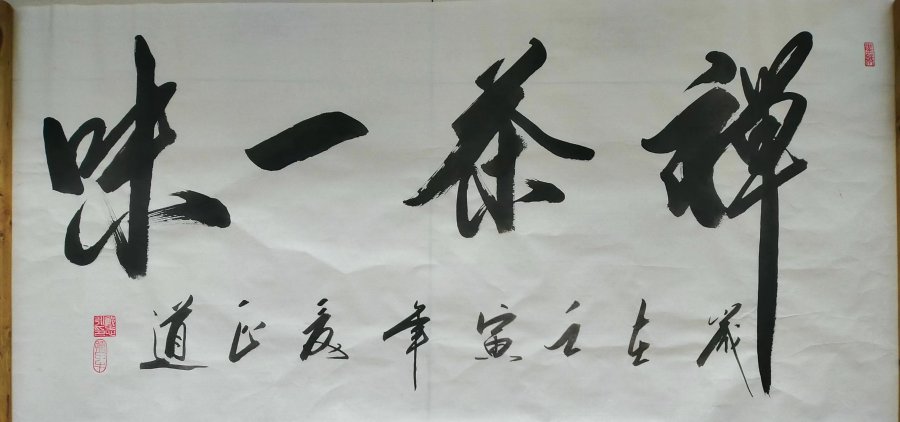 禪茶一味
歲在壬寅年夏正道